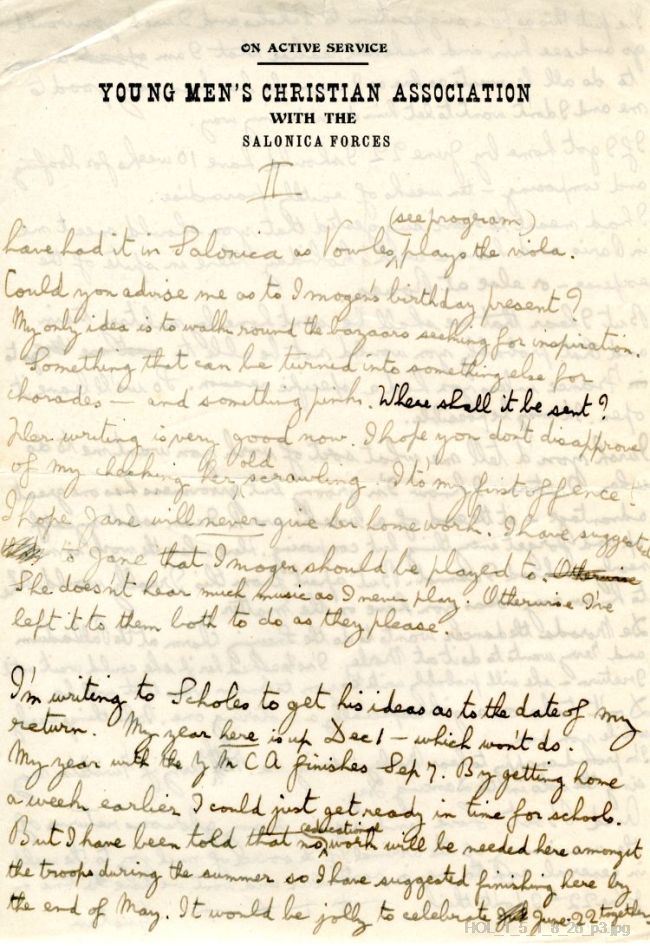 ON ACTIVE SERVICE
YOUNG MEN'S CHRISTIAN ASSOCIATION
WITH THE
SALONICA FORCES
II
(see program)
have had it in Salonica as Vowles plays the viola.
Could you advise me as to Imogen's birthday present?
My only idea is to walk round the bazaars seeking for inspiration.
Something that can be turned into something else for
charades – and something pink. Where shall it be sent?
Her writing is very good now. I hope you don't disapprove
of my cheeking her old scrawling. It's my first offence!
I hope Jane will never give her home work. I have suggested
to Jane that Imogen should be played to. Otherwise
She doesn't hear much music as I never play. Otherwise I've
left it to them both to do as they please.
I'm writing to Scholes to get his ideas as to the date of my
return. My year here is up Dec 1 – which won't do.
My year with the YMCA finishes Sep 7. By getting home
a week earlier I could just get ready in time for school.
But I have been told that no educational work will be needed here amongst
the troops during the summer so I have suggested finishing here by
the end of May. It would be jolly to celebrate June 22 together
HOL_1_5_1_8_26_p3.jpg